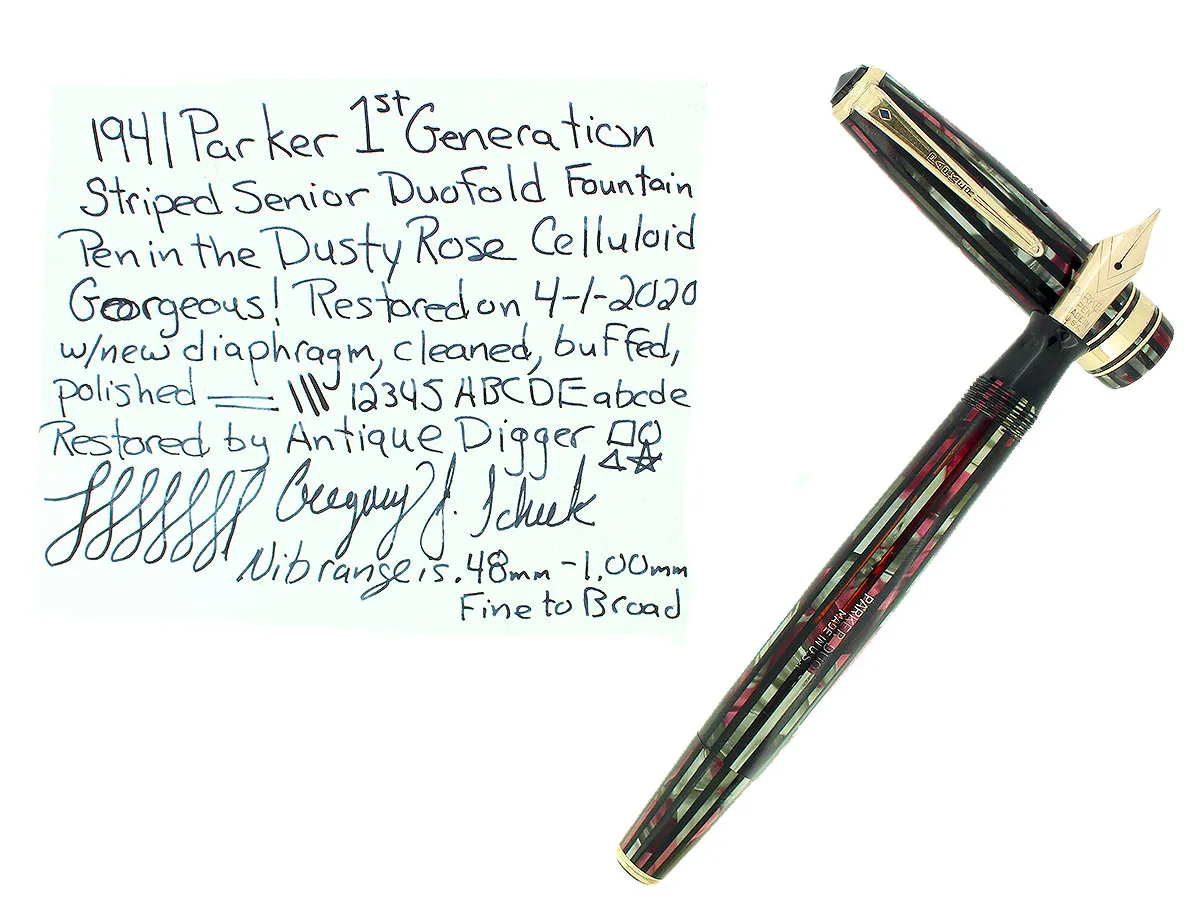 1941 Parker 1st Generation
Striped Senior Duofold Fountain
Pen in the Dusty Rose Celluloid
Gorgeous! Restored on 4-1-2020
w/new diaphragm, cleaned, buffed,
polished 12345 ABCDE abcde
Restored by Antique Digger
Gregory J.
Nib range is .48mm - 1.00mm
Fine to Broad
PARKER
PARKER
PEN
MADE IN
U.S.A.
PARKER
MADE IN U.S.A.